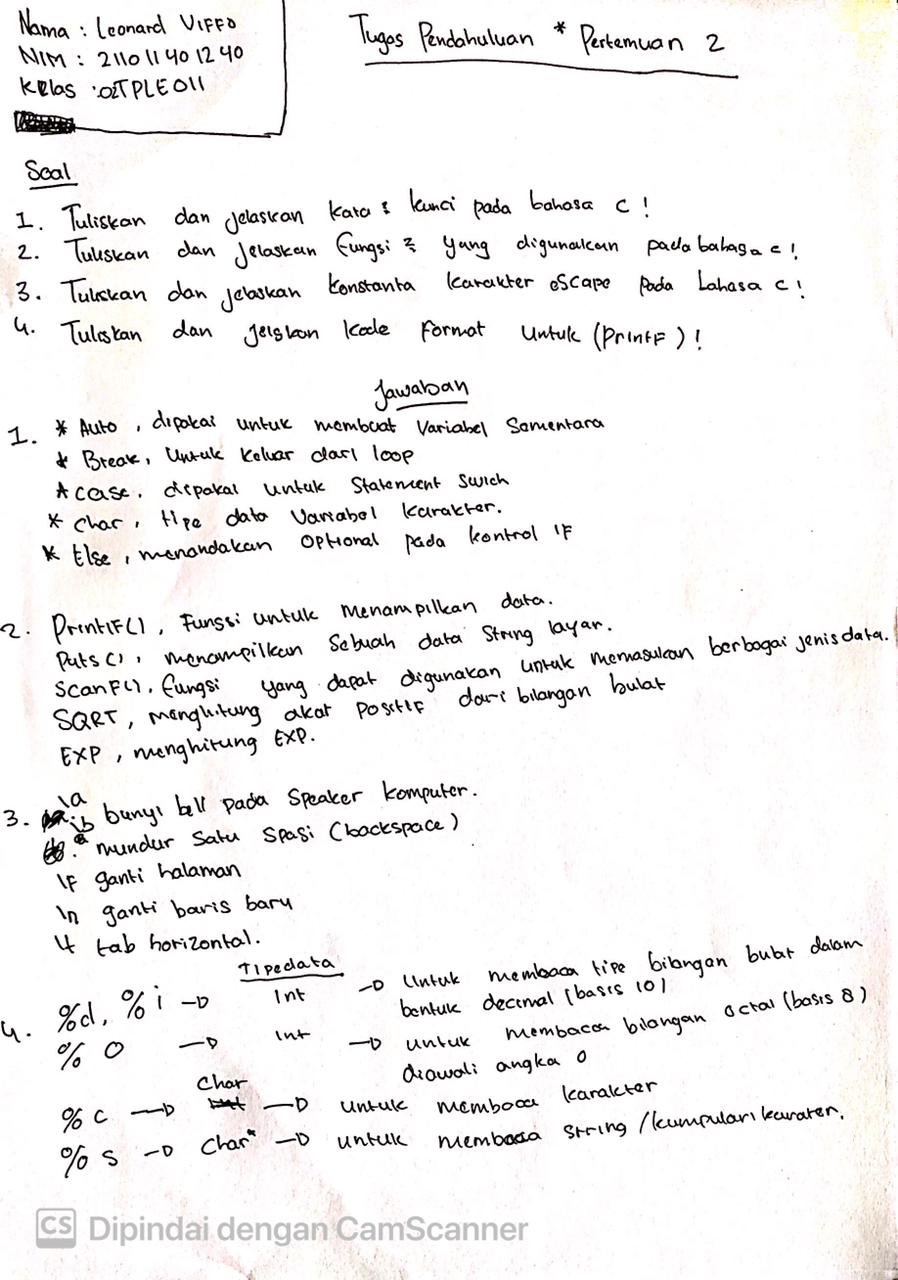 Nama : Leonard Viffo
NIM : 2110 11 40 12 40
Kelas : 02TPLE011
Tugas Pendahuluan * Pertemuan 2
Soal
1. Tuliskan dan jelaskan kata2 kunci pada bahasa C !
2. Tuliskan dan jelaskan fungsi2 yang digunakan pada bahasa c !
3. Tuliskan dan jelaskan konstanta karakter escape pada bahasa C !
4. Tuliskan dan jelskan kode format untuk (PrintF) !
Jawaban
1. * Auto , dipakai untuk membuat Variabel Sementara
* Break, Untuk keluar dari loop
* case, dipakai untuk Statement Swich
* char, tipe data Variabel karakter.
* Else , menandakan Optional pada kontrol IF
2. PrintIF() , Fungsi untuk menampilkan data.
Puts() , menampilkan Sebuah data String layar.
ScanF(), fungsi yang dapat digunakan untuk memasukan berbagai jenis data.
SQRT , menghitung akar positif dari bilangan bulat
EXP , menghitung EXP.
3. \a bunyi bell pada Speaker komputer.
\b mundur Satu Spasi (backspace)
\F ganti halaman
\n ganti baris baru
\t tab horizontal.
Tipe data
4. %d, %i → Int → Untuk membaca tipe bilangan bulat dalam
bentuk decimal (basis 10)
% O → Int → untuk membaca bilangan octal (basis 8)
diawali angka 0
% c → Char → untuk membaca karakter
% s → Char* → untuk membaca string / kumpulan karater.
CS Dipindai dengan CamScanner